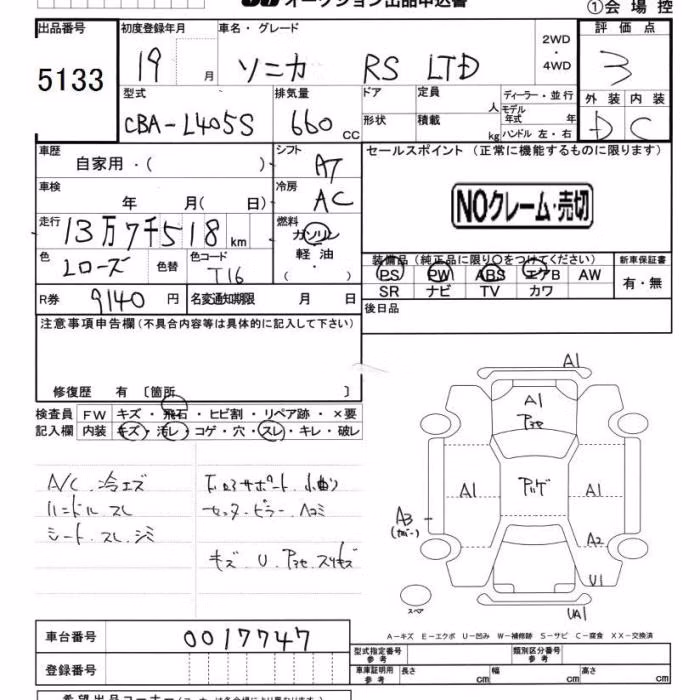 オークション出品申込書
①会場控
出品番号
5133
初度登録年月
19 月
車名・グレード
ソニカ RS LTD
2WD
・
4WD
評価点
3
外装 内装
D C
型式
CBA-L405S
排気量
660 CC
ドア
定員
人
形状
積載
kg
ディーラー・並行
モデル
年式 年
ハンドル 左・右
車歴
自家用・( )
シフト
AT
車検
年 月( 日)
冷房
AC
走行
13万7千518 km
燃料
ガソリン
軽油
( ・ )
色
Lローズ
色替
色コード
T16
R券
9140 円
名変通知期限 月 日
セールスポイント (正常に機能するものに限ります)
NOクレーム・売切
装備品(純正品に限り○をつけてください)
PS PW ABS エアB AW
SR ナビ TV カワ
新車保証書
有・無
後日品
注意事項申告欄(不具合内容等は具体的に記入して下さい)
修復歴 有 〔箇所 〕
検査員
記入欄
FW キズ・飛石・ヒビ割・リペア跡・×要
内装 キズ・汚レ・コゲ・穴・スレ・キレ・破レ
A/C 冷エズ
ハンドル スレ
シート スレ シミ
サポート 小曲り
センターピラー ヘコミ
キズ U アセ スリキズ
A1
A1
アセ
A1
アハゲ
A1
A3
(カバー)
A2
U1
UA1
スペア
A-キズ E-エクボ U-凹み W-補修跡 S-サビ C-腐食 XX-交換済
車台番号
0017747
登録番号
型式指定番号
参考
類別区分番号
参考
車庫証明用
参考
長さ cm
幅 cm
高さ cm
希望出品コーナー